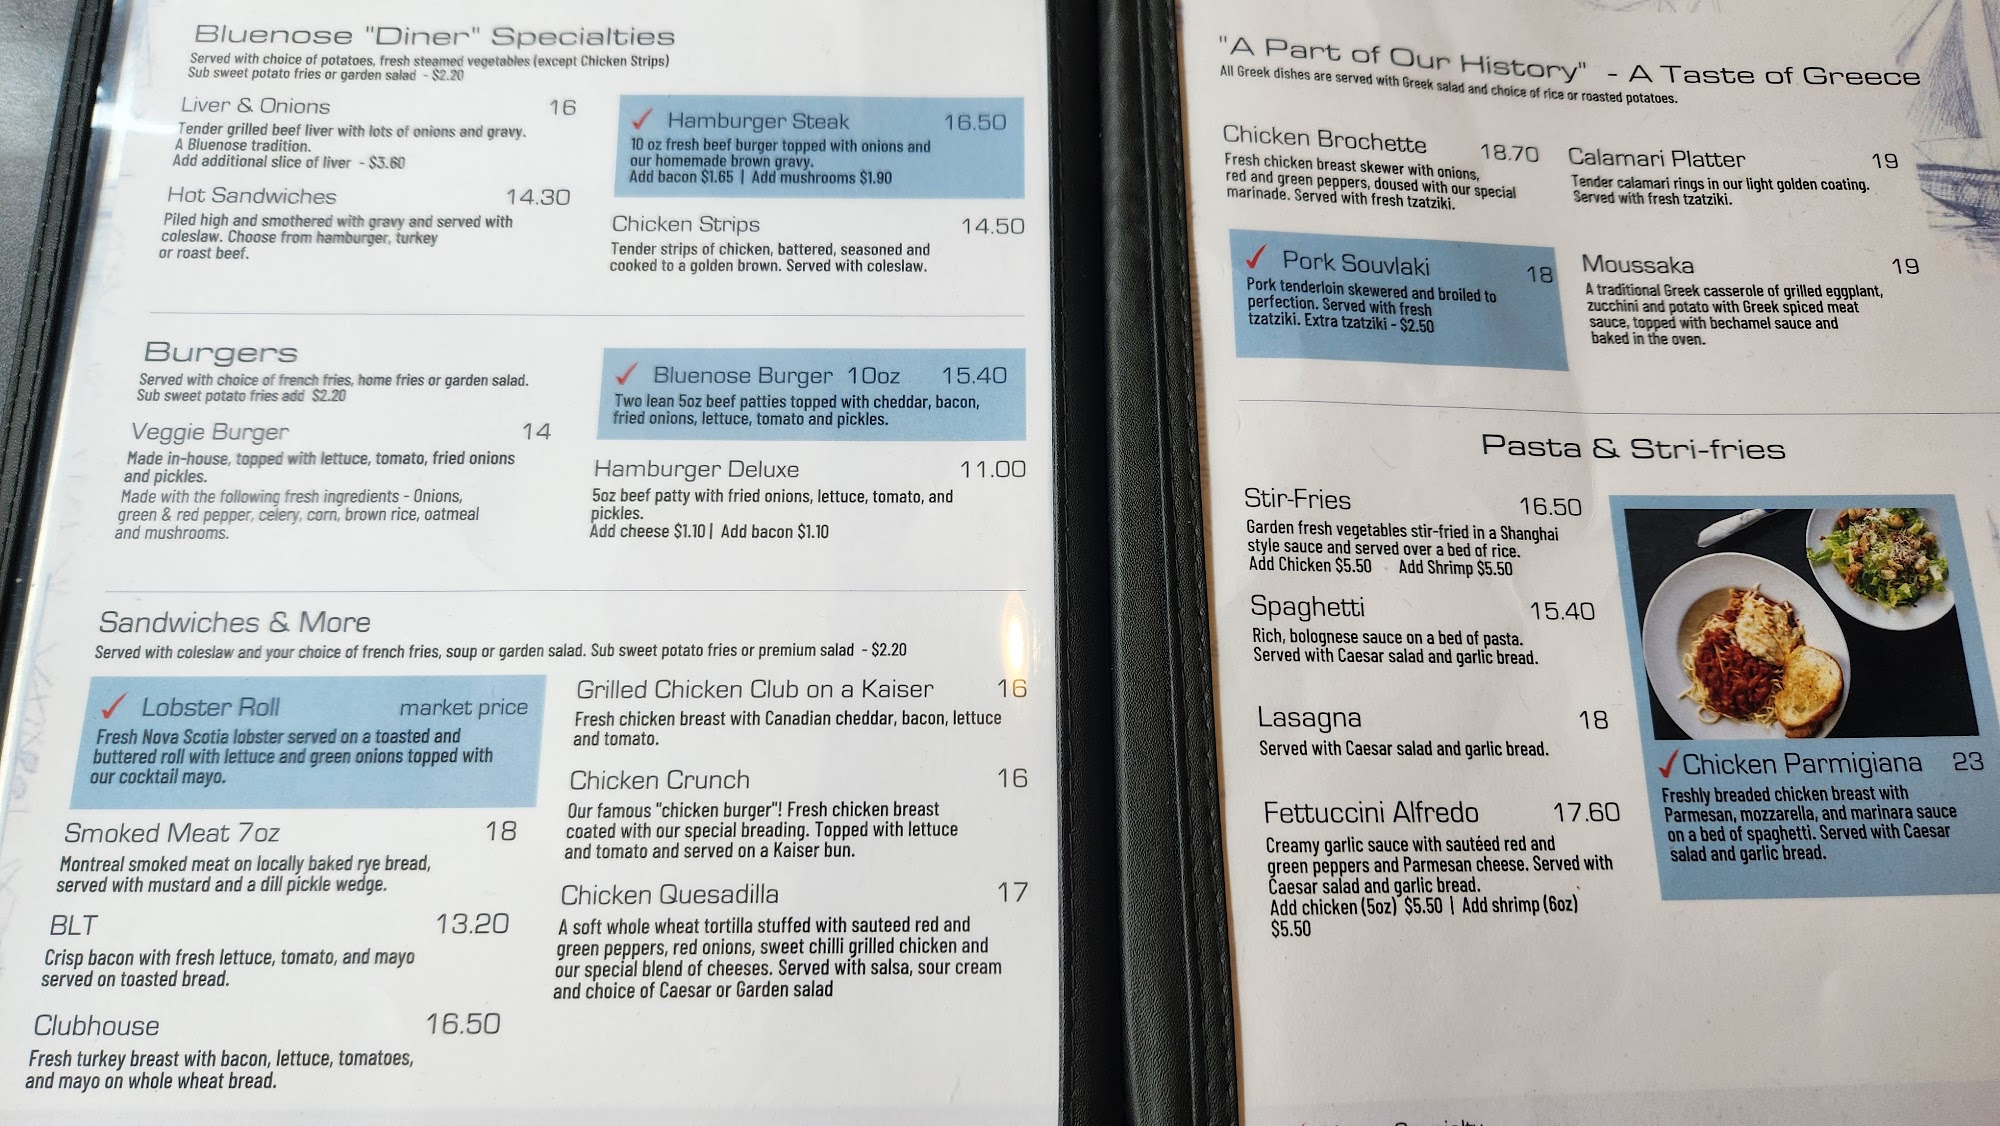 Bluenose "Diner" Specialties
Served with choice of potatoes, fresh steamed vegetables (except Chicken Strips)
Sub sweet potato fries or garden salad - $2.20
Liver & Onions 16
Tender grilled beef liver with lots of onions and gravy.
A Bluenose tradition.
Add additional slice of liver - $3.60
Hot Sandwiches 14.30
Piled high and smothered with gravy and served with
coleslaw. Choose from hamburger, turkey
or roast beef.
✓ Hamburger Steak 16.50
10 oz fresh beef burger topped with onions and
our homemade brown gravy.
Add bacon $1.65 | Add mushrooms $1.90
Chicken Strips 14.50
Tender strips of chicken, battered, seasoned and
cooked to a golden brown. Served with coleslaw.
Burgers
Served with choice of french fries, home fries or garden salad.
Sub sweet potato fries add $2.20
Veggie Burger 14
Made in-house, topped with lettuce, tomato, fried onions
and pickles.
Made with the following fresh ingredients - Onions,
green & red pepper, celery, corn, brown rice, oatmeal
and mushrooms.
✓ Bluenose Burger 10oz 15.40
Two lean 5oz beef patties topped with cheddar, bacon,
fried onions, lettuce, tomato and pickles.
Hamburger Deluxe 11.00
5oz beef patty with fried onions, lettuce, tomato, and
pickles.
Add cheese $1.10 | Add bacon $1.10
Sandwiches & More
Served with coleslaw and your choice of french fries, soup or garden salad. Sub sweet potato fries or premium salad - $2.20
✓ Lobster Roll market price
Fresh Nova Scotia lobster served on a toasted and
buttered roll with lettuce and green onions topped with
our cocktail mayo.
Smoked Meat 7oz 18
Montreal smoked meat on locally baked rye bread,
served with mustard and a dill pickle wedge.
BLT 13.20
Crisp bacon with fresh lettuce, tomato, and mayo
served on toasted bread.
Clubhouse 16.50
Fresh turkey breast with bacon, lettuce, tomatoes,
and mayo on whole wheat bread.
Grilled Chicken Club on a Kaiser 16
Fresh chicken breast with Canadian cheddar, bacon, lettuce
and tomato.
Chicken Crunch 16
Our famous "chicken burger"! Fresh chicken breast
coated with our special breading. Topped with lettuce
and tomato and served on a Kaiser bun.
Chicken Quesadilla 17
A soft whole wheat tortilla stuffed with sauteed red and
green peppers, red onions, sweet chilli grilled chicken and
our special blend of cheeses. Served with salsa, sour cream
and choice of Caesar or Garden salad
"A Part of Our History" - A Taste of Greece
All Greek dishes are served with Greek salad and choice of rice or roasted potatoes.
Chicken Brochette 18.70
Fresh chicken breast skewer with onions,
red and green peppers, doused with our special
marinade. Served with fresh tzatziki.
✓ Pork Souvlaki 18
Pork tenderloin skewered and broiled to
perfection. Served with fresh
tzatziki. Extra tzatziki - $2.50
Calamari Platter 19
Tender calamari rings in our light golden coating.
Served with fresh tzatziki.
Moussaka 19
A traditional Greek casserole of grilled eggplant,
zucchini and potato with Greek spiced meat
sauce, topped with bechamel sauce and
baked in the oven.
Pasta & Stri-fries
Stir-Fries 16.50
Garden fresh vegetables stir-fried in a Shanghai
style sauce and served over a bed of rice.
Add Chicken $5.50 Add Shrimp $5.50
Spaghetti 15.40
Rich, bolognese sauce on a bed of pasta.
Served with Caesar salad and garlic bread.
Lasagna 18
Served with Caesar salad and garlic bread.
Fettuccini Alfredo 17.60
Creamy garlic sauce with sautéed red and
green peppers and Parmesan cheese. Served with
Caesar salad and garlic bread.
Add chicken (5oz) $5.50 | Add shrimp (6oz)
$5.50
✓ Chicken Parmigiana 23
Freshly breaded chicken breast with
Parmesan, mozzarella, and marinara sauce
on a bed of spaghetti. Served with Caesar
salad and garlic bread.